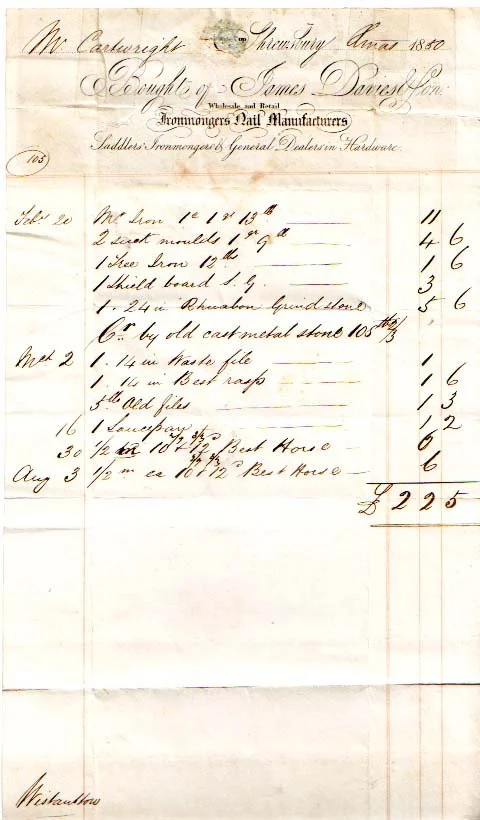 Mr Cartwright Shrewsbury Xmas 1850
Bought of James Davies & Son
Wholesale and Retail
Ironmongers Nail Manufacturers
Saddlers' Ironmongers & General Dealers in Hardware.
105
Feby 20 Mt Iron 1c 1qr 13th 11
2 moulds 1qr 9th 4 6
1 Tree Iron 12th 1 6
1 Shield board S. G. 3
1. 24 in Rhuabon Grindstone 5 6
Cr by old cast metal stone 105th
Mch 2 1. 14 in Waste file 1
1. 14 in Best rasp 1 6
5th Old files 1 3
16 1 Saucepan 1 2
30 1/2 m 10d & 12d Best Horse 6
Aug 3 1/2 m ea 10 & 12d Best Horse 6
£ 2 2 5
Wistanstow